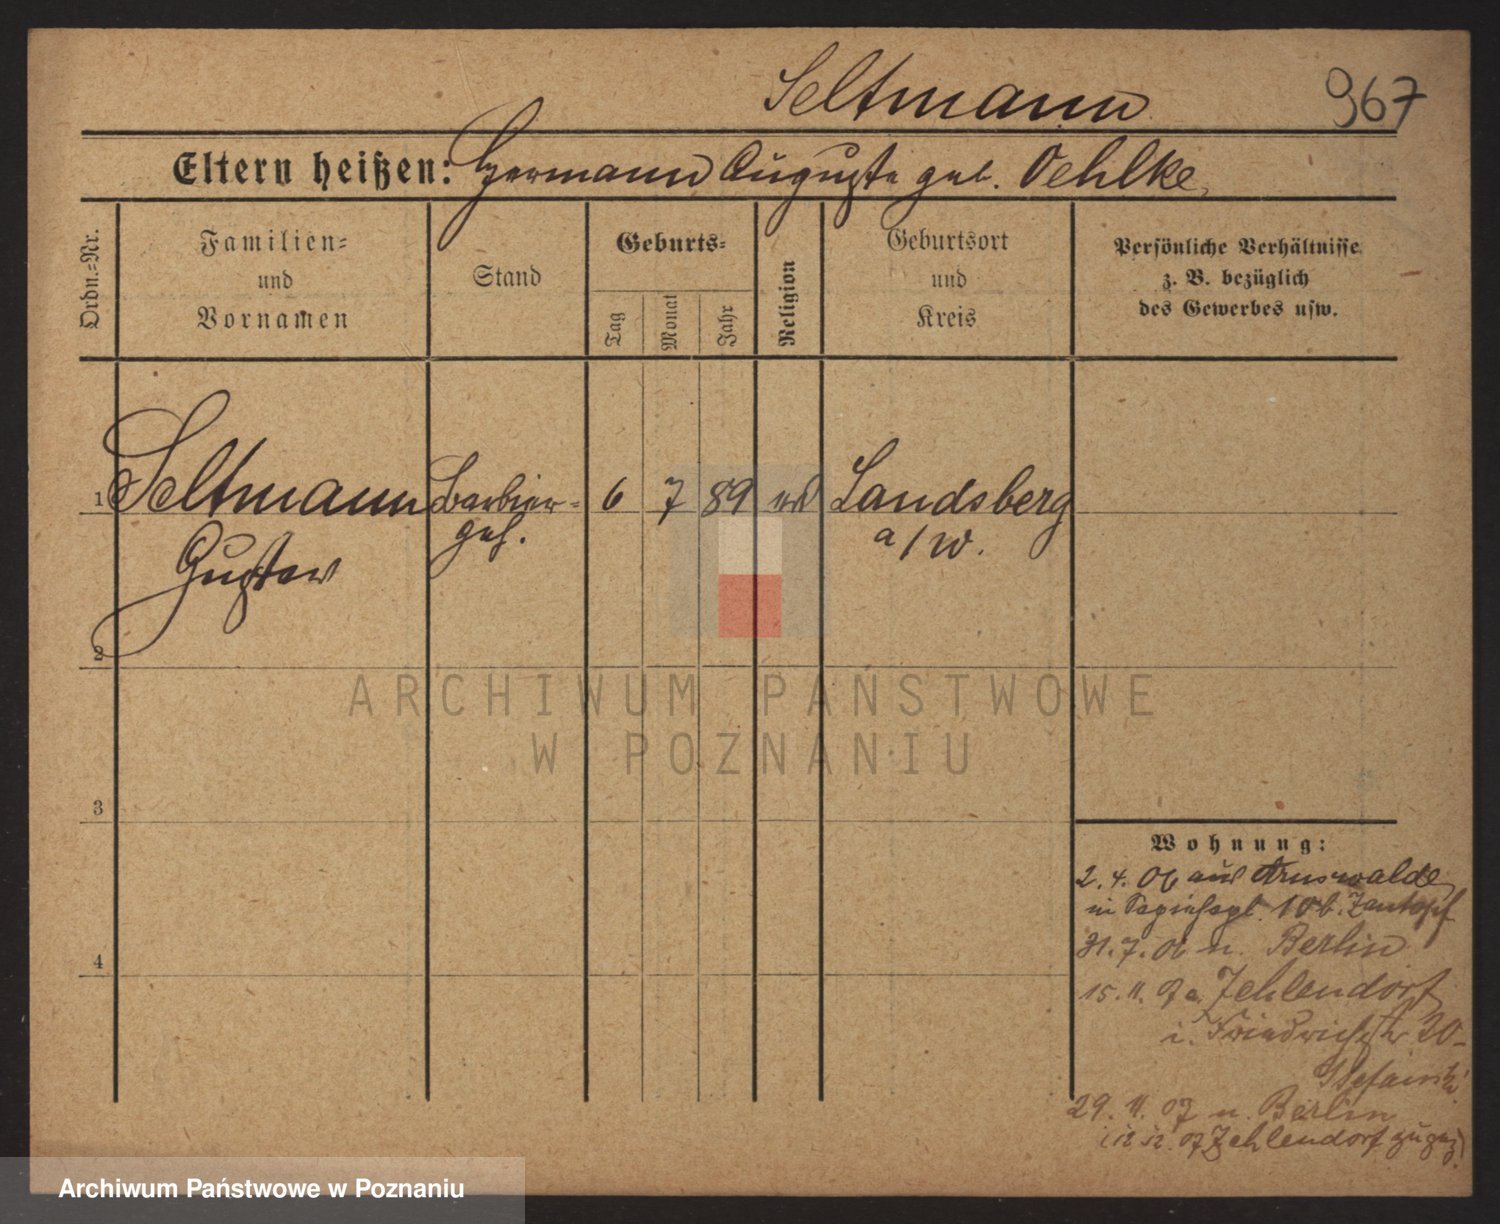 Seltmann 967
Eltern heißen: Hermann Auguste geb. Oehlke
Ordn.-Nr.
Familien-
und
Vornamen
Stand
Geburts-
Tag
Monat
Jahr
Religion
Geburtsort
und
Kreis
Persönliche Verhältnisse
z. B. bezüglich
des Gewerbes usw.
1 Seltmann Barbier- 6 7 89 Landsberg
geh. a/W.
Gustav
2
3
4
Wohnung:
2. 4. 06 aus Arnswalde
in 10 b.
31. 7. 06 n. Berlin
15. 11. 07 a. Zehlendorf
i. Friedrichstr 30
29. 11. 07 n. Berlin
(12 12. 07 Zehlendorf
ARCHIWUM PAŃSTWOWE
W POZNANIU
Archiwum Państwowe w Poznaniu